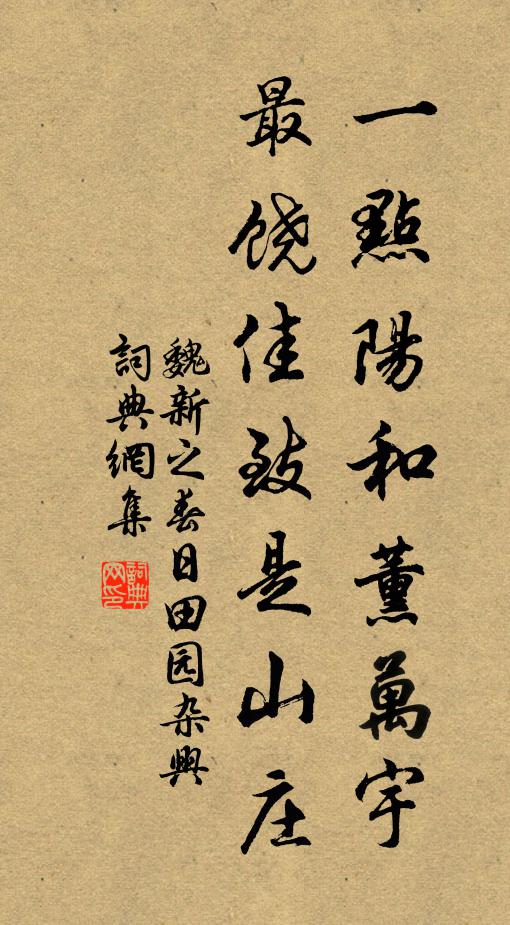 一點陽和薰萬宇
最饶佳致是山庄
魏新之春日田园杂興
詞典網集
詞典网印